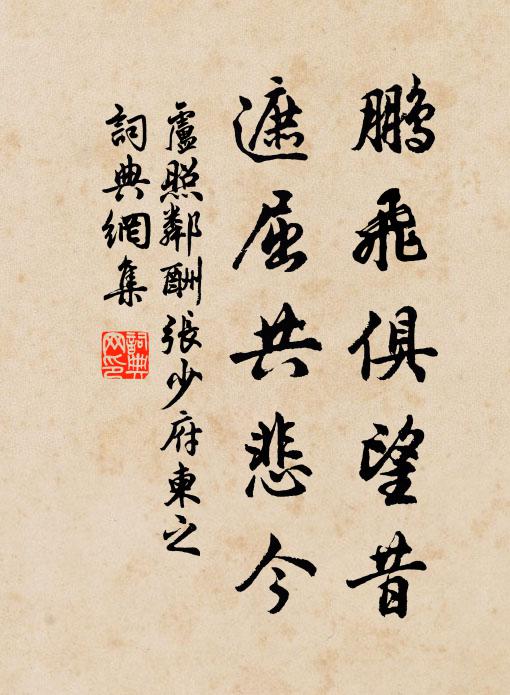 鵬飛俱望昔
遮屈共悲今
盧照鄰酬張少府東之
詞典網集
詞典网印